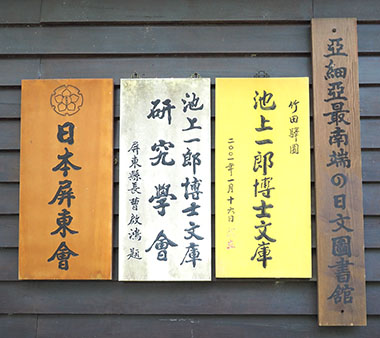 亞細亞最南端の日文圖書館
竹田驛園
池上一郎博士文庫
二〇〇一年一月十六日
池上一郎博士文庫
研究學會
屏東縣長曹啟鴻 題
日本屏東會